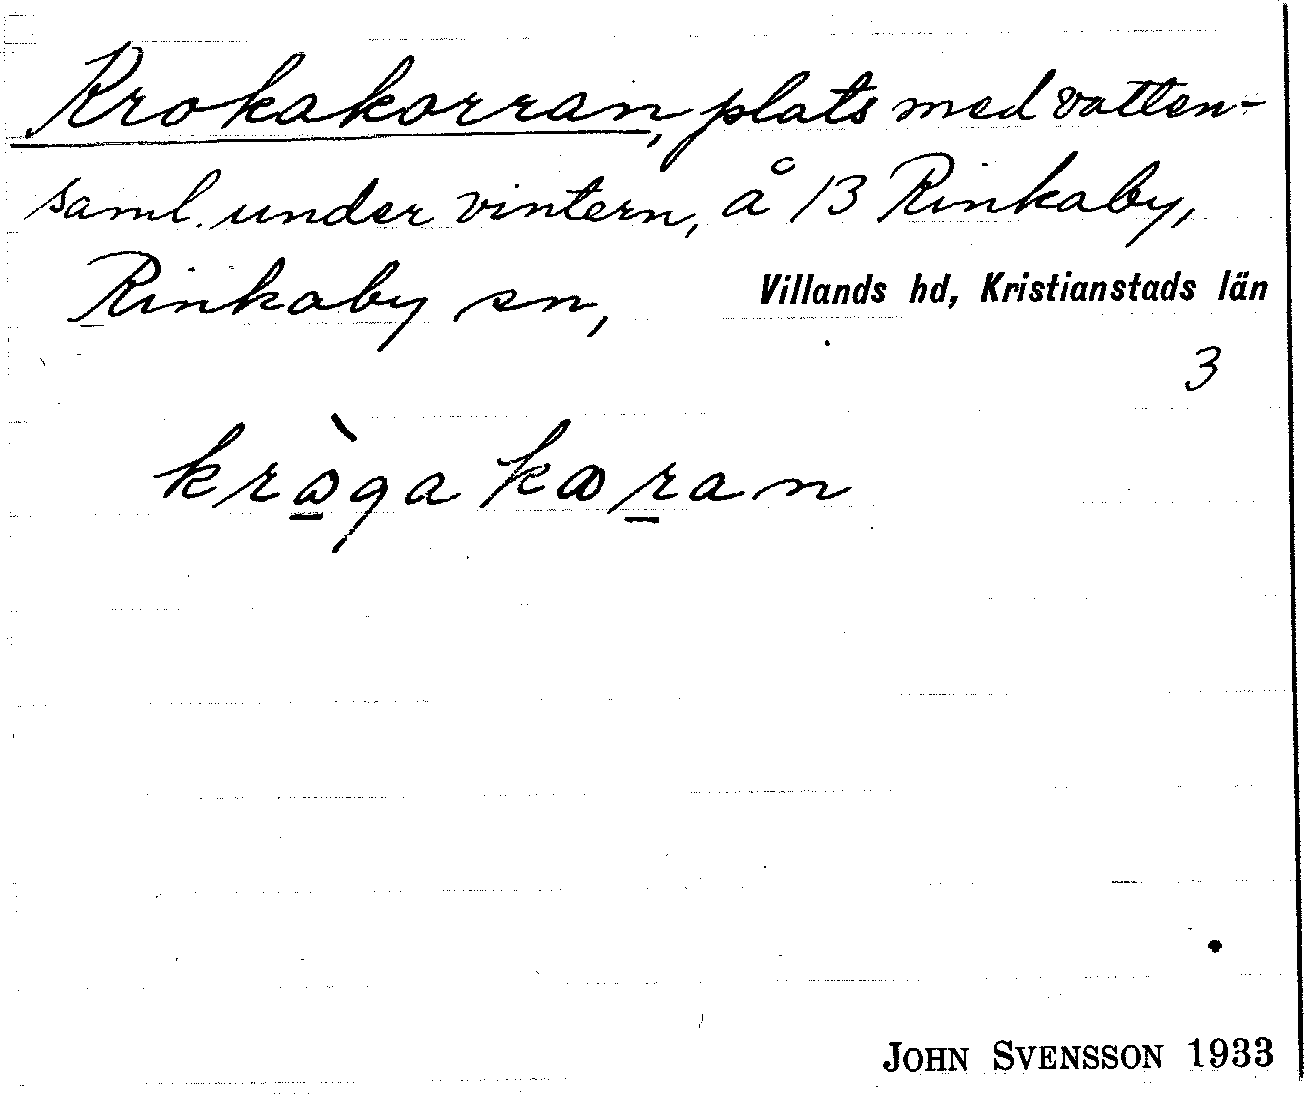 Krokakorran, plats med vatten-
saml. under vintern, å 13 Rinkaby,
Rinkaby sn, Villands hd, Kristianstads län
3
JOHN SVENSSON 1933